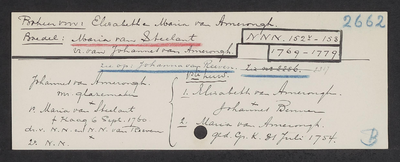 Boken voor: Elisabetha Maria van Amerongh. 2662
Boedel: Maria van Steelant N.N.N. 152-153
w. van Johannes van Amerongh 1769-1779
Zie op: Johanna van Reeven. Zie no
Johannes van Amerongh.
mr. glasemaker
+
1o. Maria van Steelant
+ 6 Sept. 1760
d.v. N.N. en N.N. van
2o. N.N.
1. Elisabeth van Amerongh.
+
Johannes
2. Maria van Amerongh.
ged. Gr. K. 21 Juli 1754.